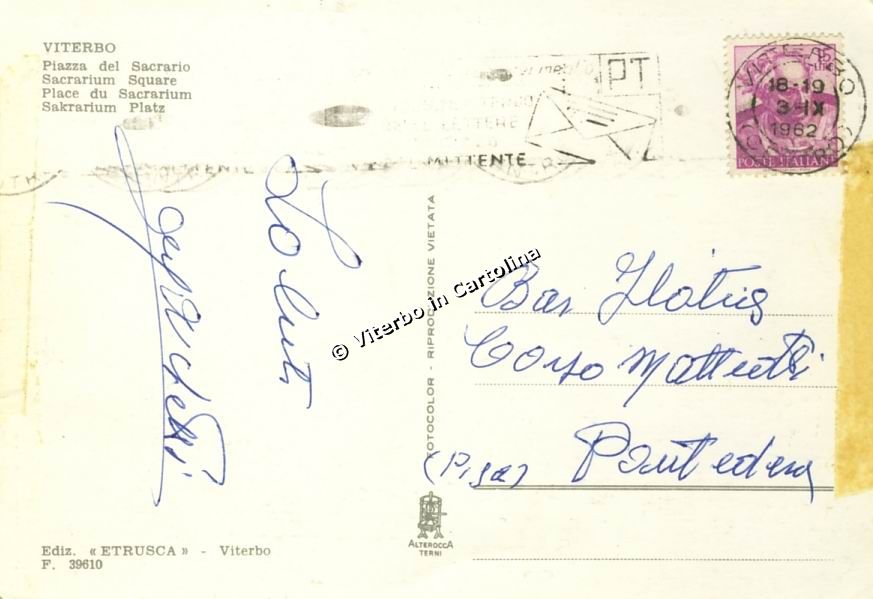 VITERBO
Piazza del Sacrario
Sacrarium Square
Place du Sacrarium
Sakrarium Platz
PT
LETTERE
MITTENTE
VITERBO
18-19
3-IX
1962
POSTE ITALIANE
Saluti
© Viterbo in Cartolina
FOTOCOLOR - RIPRODUZIONE VIETATA
Bar
Corso Matteotti
(Pisa) Pontedera
ALTEROCCA
TERNI
Ediz. « ETRUSCA » - Viterbo
F. 39610